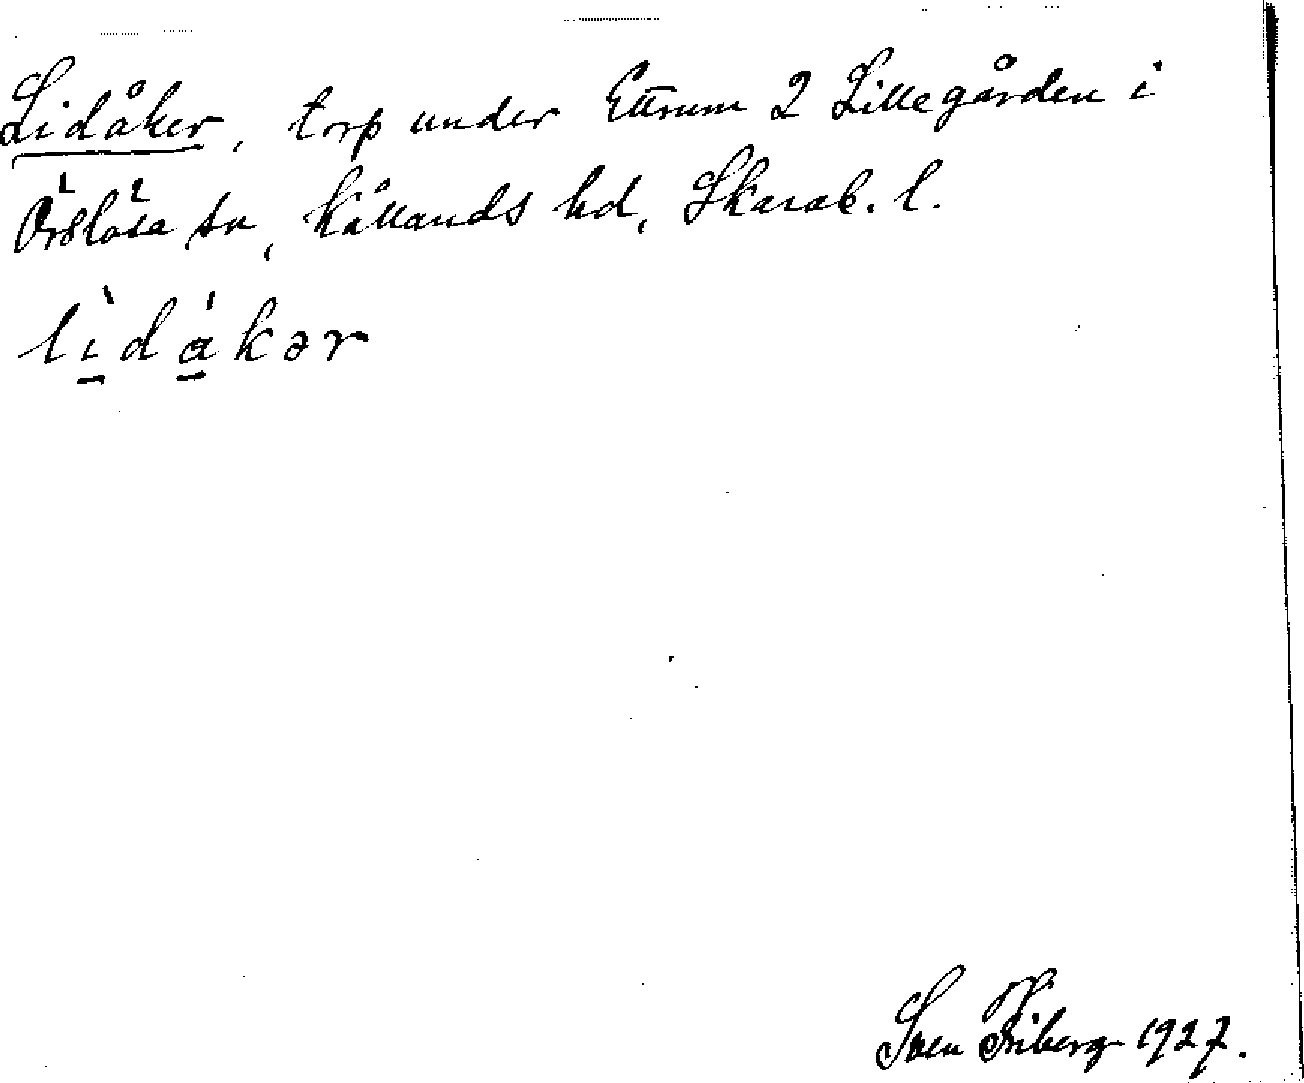 Lidåker, torp under Ettrum 2 Lillegården i
Örslösa sn, Kållands hd, Skarab. l.
lìdákər
Sven Friberg 1927.